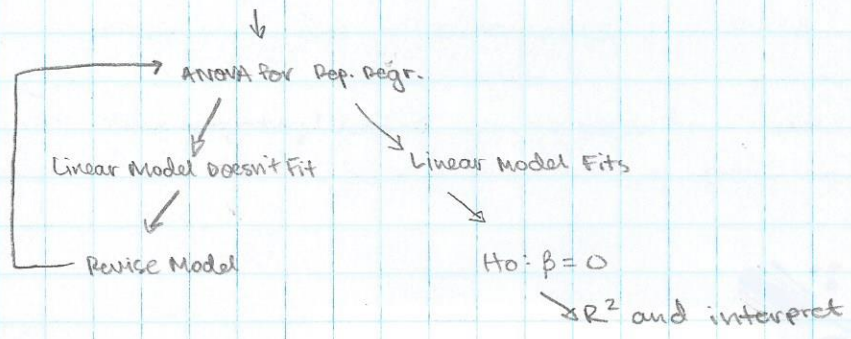 ANOVA for Rep. Regr.
Linear Model Doesn't Fit
Linear Model Fits
Revise Model
Ho: β = 0
R² and interpret